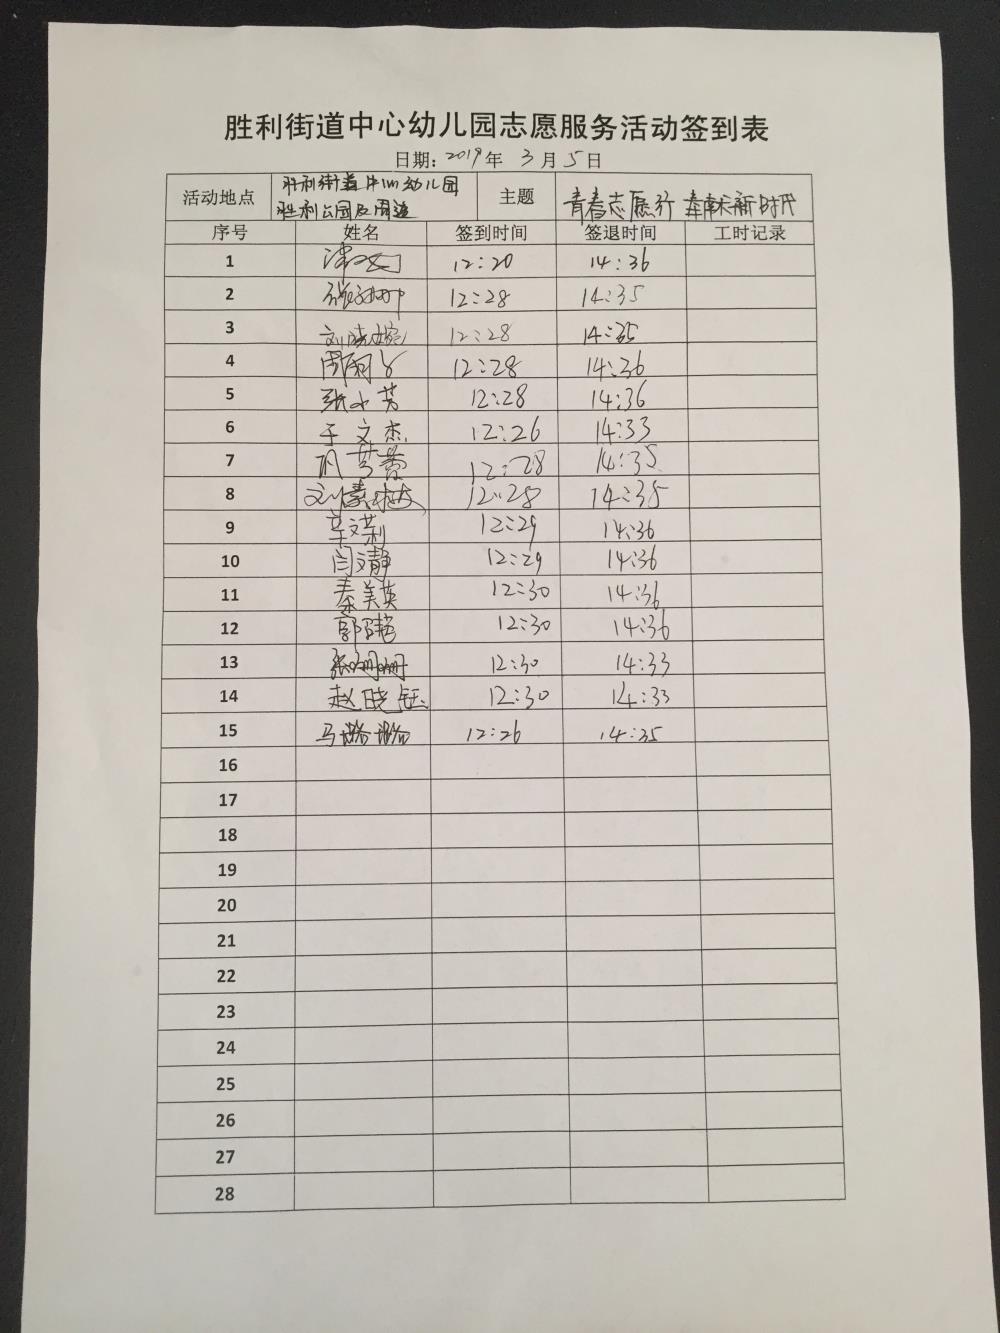 胜利街道中心幼儿园志愿服务活动签到表
日期：2019年 3月 5日
活动地点 胜利街道中心幼儿园 胜利公园及周边 主题 青春志愿行 奉献新时代
序号 姓名 签到时间 签退时间 工时记录
1 12:20 14:36
2 12:28 14:35
3 刘晓婷 12:28 14:35
4 12:28 14:36
5 张小芳 12:28 14:36
6 于文杰 12:26 14:33
7 12:28 14:35
8 12:28 14:35
9 辛文莉 12:29 14:36
10 闫文静 12:29 14:36
11 秦美英 12:30 14:36
12 郭艳 12:30 14:36
13 张珊珊 12:30 14:33
14 赵晓钰 12:30 14:33
15 马璐璐 12:26 14:35
16
17
18
19
20
21
22
23
24
25
26
27
28